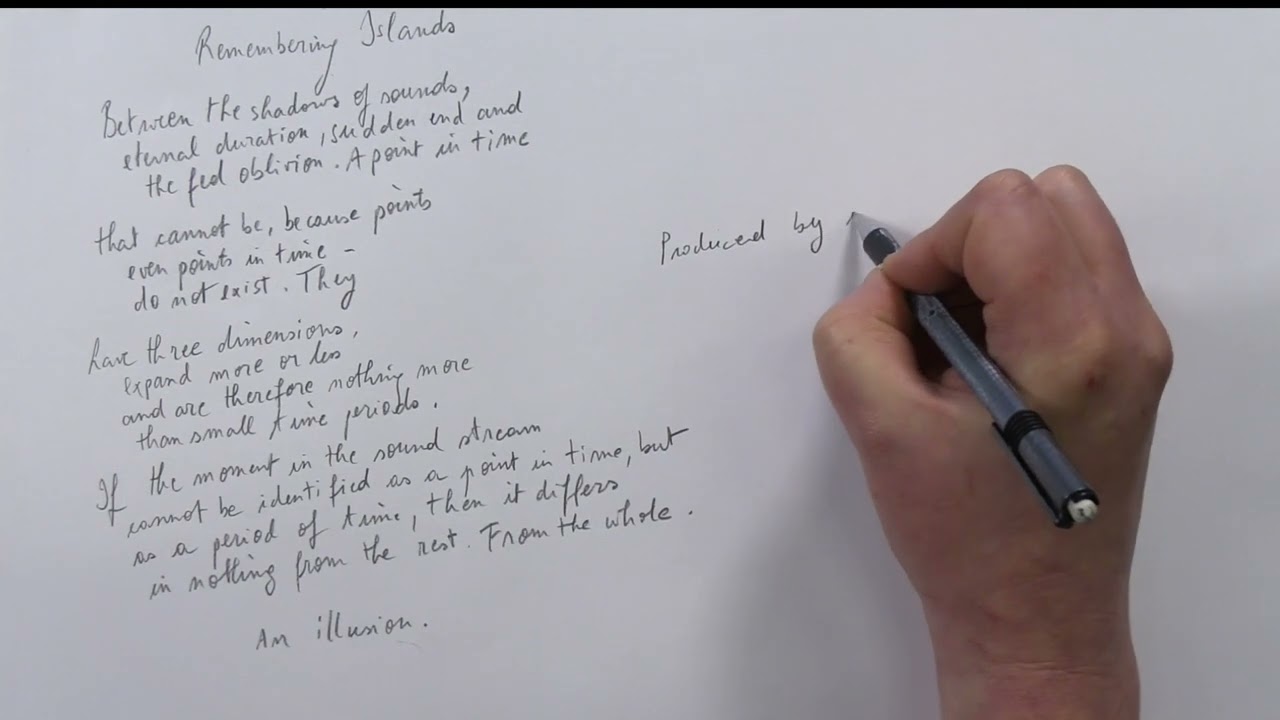 Remembering Islands
Between the shadows of sounds,
eternal duration, sudden end and
the fed oblivion. A point in time
that cannot be, because points
even points in time -
do not exist. They
have three dimensions,
expand more or less
and are therefore nothing more
than small time periods.
If the moment in the sound stream
cannot be identified as a point in time, but
as a period of time, then it differs
in nothing from the rest. From the whole.
An illusion.
Produced by